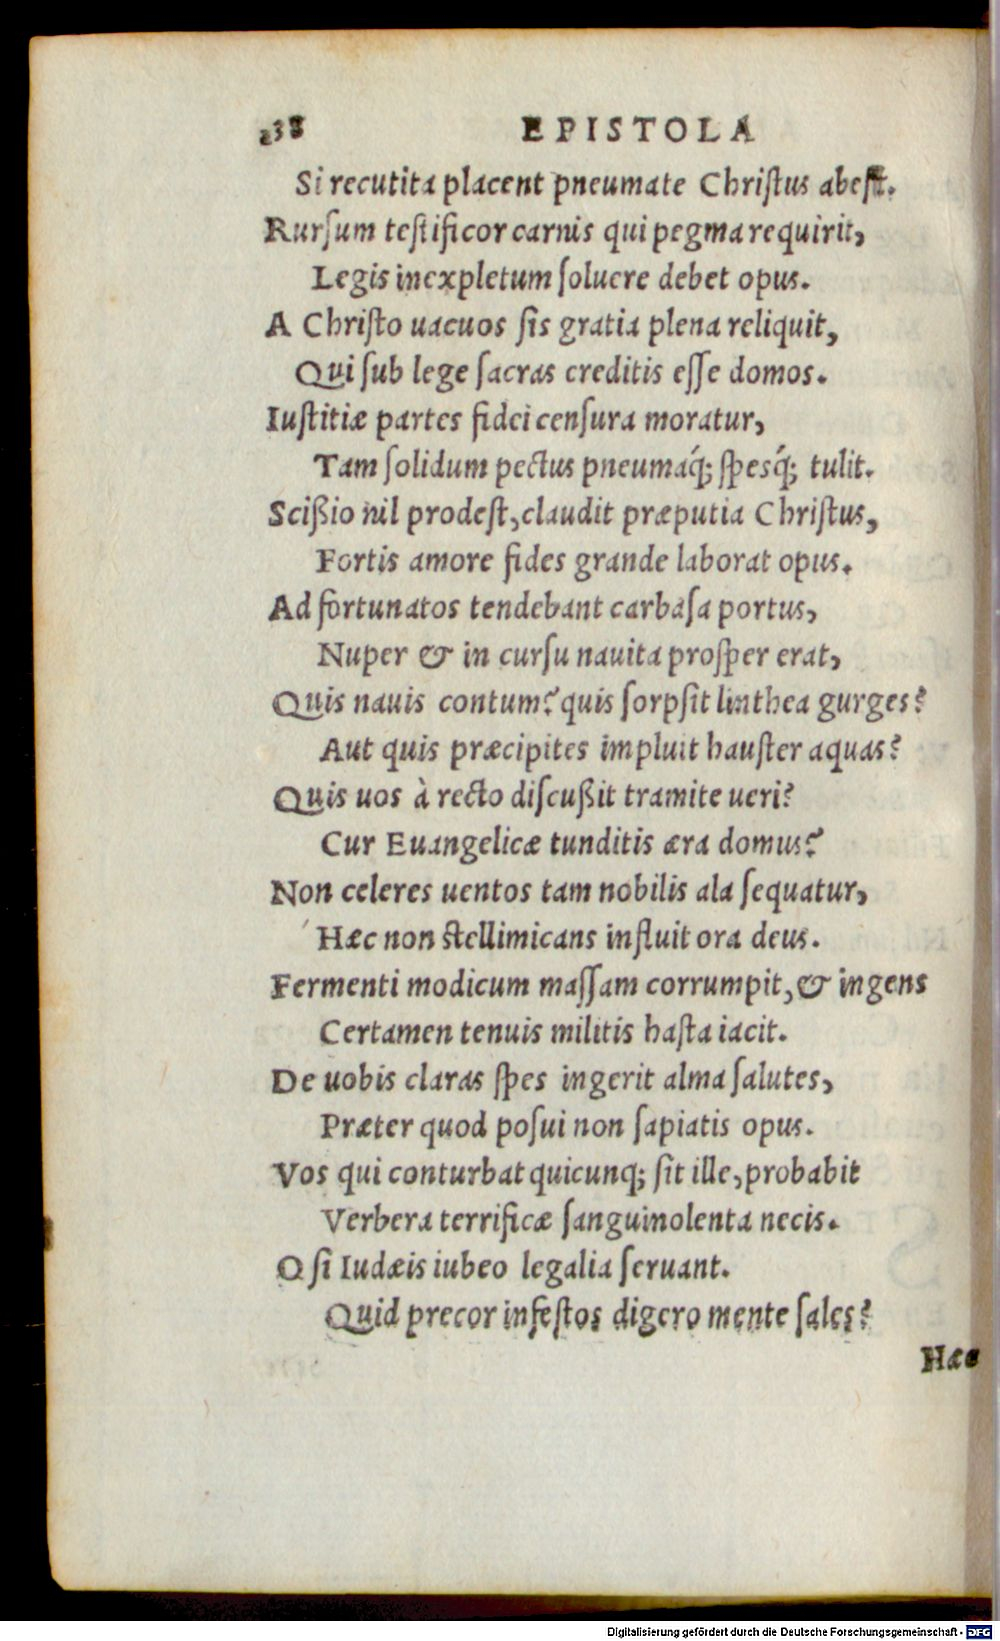 238 EPISTOLA
Si recutita placent pneumate Chriſtus abeſt.
Rurſum teſtificor carnis qui pegma requirit,
Legis inexpletum ſoluere debet opus.
A Chriſto uacuos ſis gratia plena reliquit,
Qui ſub lege ſacras creditis eſſe domos.
Iuſtitiæ partes fidei cenſura moratur,
Tam ſolidum pectus pneumaq́; ſpesq́; tulit.
Scißio nil prodeſt, claudit præputia Chriſtus,
Fortis amore fides grande laborat opus.
Ad fortunatos tendebant carbaſa portus,
Nuper & in curſu nauita proſper erat,
Quis nauis contum? quis ſorpſit linthea gurges?
Aut quis præcipites impluit hauſter aquas?
Quis uos à recto diſcußit tramite ueri?
Cur Euangelicæ tunditis æra domus?
Non celeres uentos tam nobilis ala ſequatur,
Hæc non ſtellimicans influit ora deus.
Fermenti modicum maſſam corrumpit, & ingens
Certamen tenuis militis haſta iacit.
De uobis claras ſpes ingerit alma ſalutes,
Præter quod poſui non ſapiatis opus.
Vos qui conturbat quicunq; ſit ille, probabit
Verbera terrificæ ſanguinolenta necis.
O ſi Iudæis iubeo legalia ſeruant.
Quid precor infeſtos digero mente ſales?
Hæc
Digitalisierung gefördert durch die Deutsche Forschungsgemeinschaft - DFG